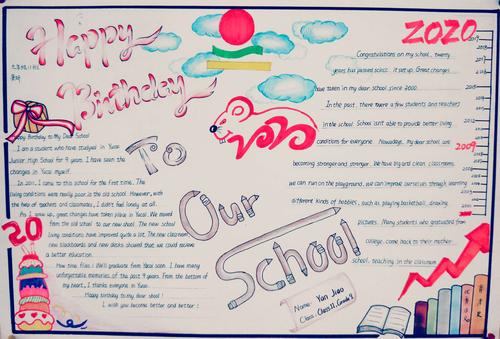 Happy
Birthday
To
Our
School
2020
2009
20
Happy Birthday to My Dear School
I am a student who have studied in Yaoxi
Junior High School for 9 years. I have seen the
changes in Yaoxi myself.
In 2011, I came to this school for the first time. The
living conditions were really poor in the old school. However, with
the help of teachers and classmates, I didn't feel lonely at all.
As I grew up, great changes have taken place in Yaoxi. We moved
from the old school to our new school. The new school
living conditions have improved quite a lot. The new classroom
new blackboards and new desks showed that we could receive
a better education.
How time flies! We'll graduate from Yaoxi soon. I have many
unforgettable memories of the past 9 years. From the bottom of
my heart, I thanks everyone in Yaoxi.
Happy birthday to my dear shool!
I wish you become better and better!
Congratulations on my school, twenty
years has passed since it set up. Great changes
have taken in my dear school since 2000.
In the past, there were a few students and teachers
in the school. School isn't able to provide better living
conditions for everyone. Nowadays, my dear school are
becoming stronger and stronger. We have big and clean classrooms.
we can run on the playground, we can improve ourselves through learning
different kinds of hobbies, such as playing basketball, drawing
pictures. Many students who graduated from
college, come back to their mother
school, teaching in the classroom.
Name: Yan Jiao
Class: Class 11, Grade 9